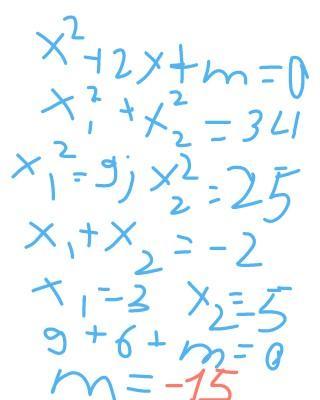 x²+2x+m=0
x₁²+x₂²=34
x₁²=9; x₂²=25
x₁+x₂=-2
x₁=3 x₂=-5
9+6+m=0
m=-15